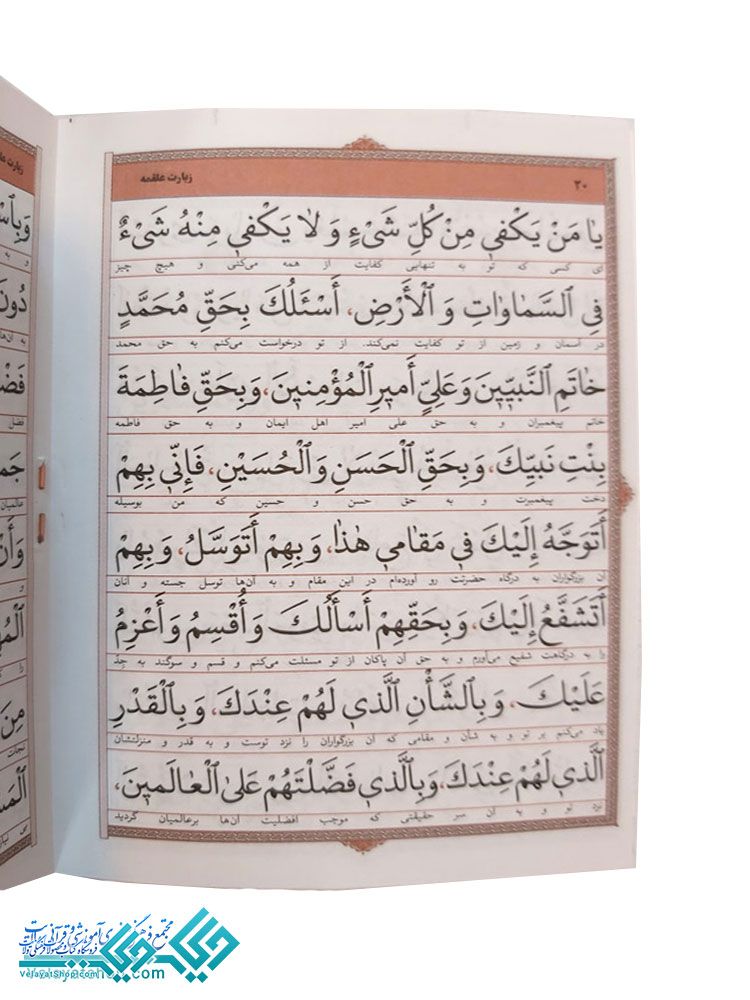 زیارت علقمه ۲۰
یٰا مَنْ یَکْفٖی مِنْ کُلِّ شَیْءٍ وَ لاٰ یَکْفٖی مِنْهُ شَیْءٌ
ای کسی که تو به تنهایی کفایت از همه می‌کنی و هیچ چیز
فِی ٱلسَّمٰاوٰاتِ وَ ٱلْأَرْضِ، أَسْئَلُكَ بِحَقِّ مُحَمَّدٍ
در آسمان و زمین از تو کفایت نمی‌کند. از تو درخواست می‌کنم به حق محمد
خٰاتَمِ ٱلنَّبِیّٖینَ وَ عَلِیٍّ أَمیٖرِ ٱلْمُؤْمِنیٖنَ، وَ بِحَقِّ فٰاطِمَةَ
خاتم پیغمبران و به حق علی امیر اهل ایمان و به حق فاطمه
بِنْتِ نَبِیِّكَ، وَ بِحَقِّ ٱلْحَسَنِ وَ ٱلْحُسَیْنِ، فَإِنّٖی بِهِمْ
دخت پیغمبرت و به حق حسن و حسین که من بوسیله
أَتَوَجَّهُ إِلَیْكَ فٖی مَقٰامٖی هٰذٰا، وَ بِهِمْ أَتَوَسَّلُ، وَ بِهِمْ
آن بزرگواران به درگاه حضرتت رو آورده‌ام در این مقام و به آن‌ها توسل جسته و آنان
أَتَشَفَّعُ إِلَیْكَ، وَ بِحَقِّهِمْ أَسْأَلُكَ وَ أُقْسِمُ وَ أَعْزِمُ
را به درگاهت شفیع می‌آورم و به حق آن پاکان از تو مسئلت می‌کنم و قسم و سوگند به جد
عَلَیْكَ، وَ بِٱلشَّأْنِ ٱلَّذٖی لَهُمْ عِنْدَكَ، وَ بِٱلْقَدْرِ
یاد می‌کنم بر تو و به شأن و مقامی که آن بزرگواران را نزد توست و به قدر و منزلتشان
ٱلَّذٖی لَهُمْ عِنْدَكَ، وَ بِٱلَّذٖی فَضَّلْتَهُمْ عَلَی ٱلْعٰالَمیٖنَ،
نزد تو و به آن سر حقیقتی که موجب افضلیت آن‌ها برعالمیان گردید
velayatshop.com